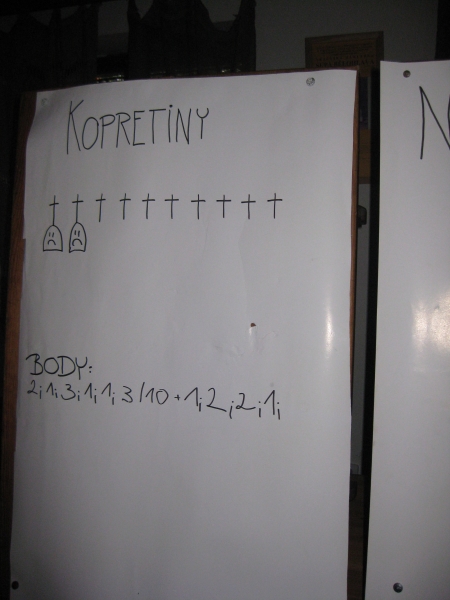 KOPRETINY
BODY:
2;1;3;1;1;3/10+1;2;2;1;
N